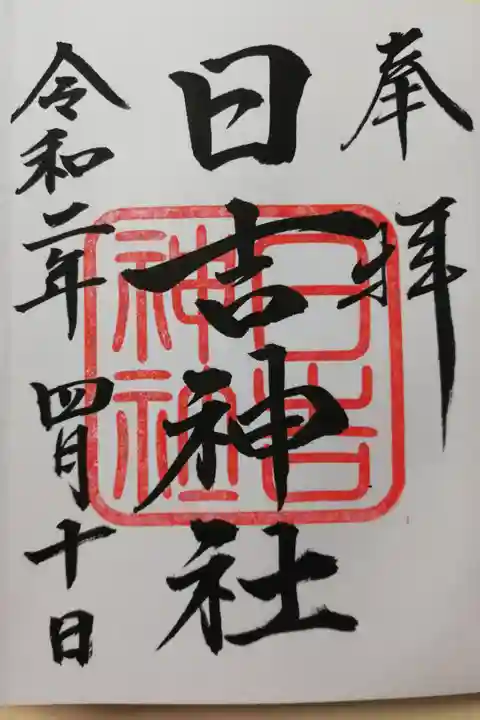 奉拝
日吉神社
日吉
神社
令和二年四月十日